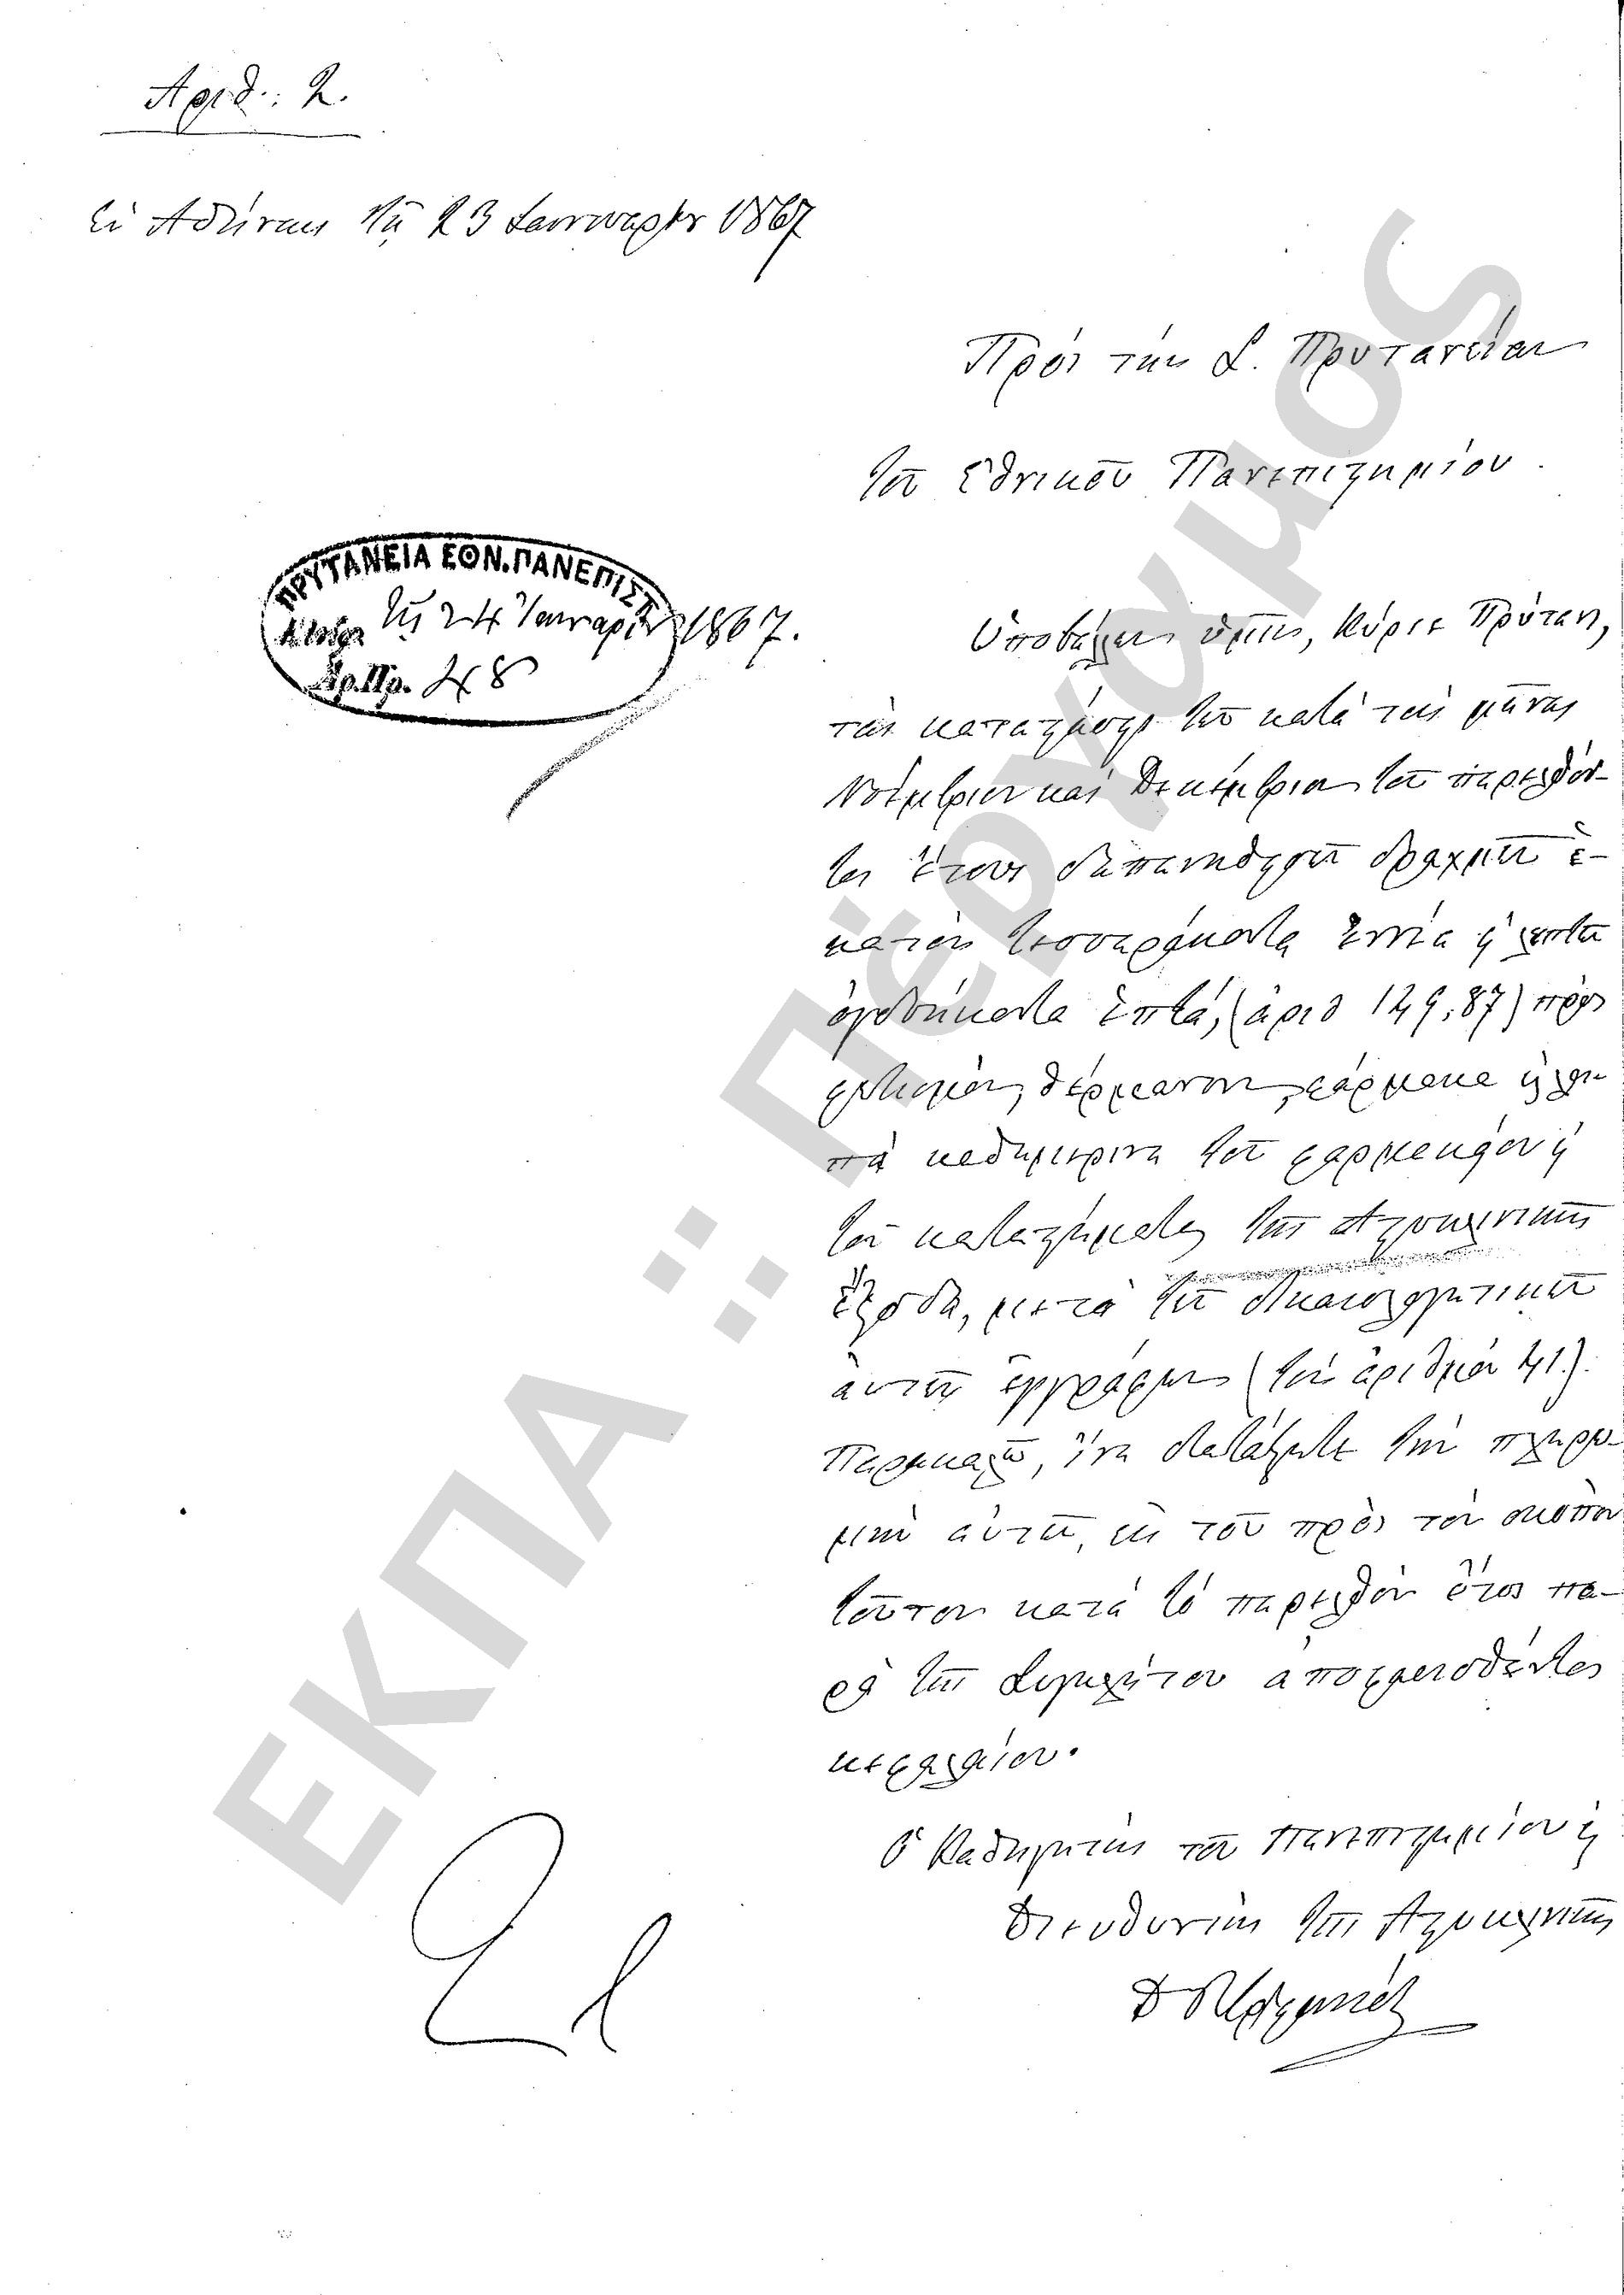 Αριθ: 2.
Ἐν Ἀθήναις τῇ 23 Ἰαννουαρίου 1867
Πρὸς τὴν Σ. Πρυτανείαν
τοῦ Ἐθνικοῦ Πανεπιστημίου.
ΠΡΥΤΑΝΕΙΑ ΕΘΝ. ΠΑΝΕΠΙΣΤ.
τῇ 24 Ἰανουαρίου 1867.
Ἀρ. Πρ. 48
Ὑποβάλλων ὑμῖν, Κύριε Πρύτανι,
τὴν κατάστασιν τῶν κατὰ τοὺς μῆνας
Νοέμβριον καὶ Δεκέμβριον τοῦ παρελθόν-
τος ἔτους δαπανηθεισῶν δραχμῶν ἑ-
κατὸν τεσσαράκοντα ἐννέα ϗ λεπτῶν
ὀγδοήκοντα ἑπτά, (ἀριθ 149,87) πρὸς
φωτισμόν, θέρμανσιν, φάρμακα ϗ λοι-
πὰ καθημερινὰ τοῦ φαρμακείου ϗ
τοῦ καταστήματος τῆς Ἀστυκλινικῆς
ἔξοδα, μετὰ τῶν δικαιολογητικῶν
αὐτῶν ἐγγράφων (τὸν ἀριθμὸν 41).
Παρακαλῶ, ἵνα διατάξητε τὴν πληρω-
μὴν αὐτῶν, ἐκ τοῦ πρὸς τὸν σκοπὸν
τοῦτον κατὰ τὸ παρελθὸν ἔτος πα-
ρὰ τῆς Συγκλήτου ἀποφασισθέντος
κεφαλαίου.
Ὁ Καθηγητὴς τοῦ Πανεπιστημίου ϗ
Διευθυντὴς τῆς Ἀστυκλινικῆς
ΕΚΠΑ :: Πέργαμος